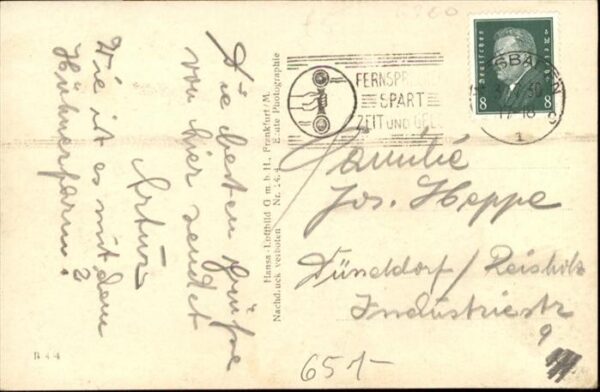 Die besten Grüße
von hier sendet
Artur
Wie ist es mit dem
Hühnerfarm?
B 4/4
Hansa-Luftbild G. m. b. H., Frankfurt/M.
Nachdruck verboten Echte Photographie
FERNSPR
SPART
ZEIT UND GEL
Deutsches Reich
8 8
Familie
Jos. Heppe
Düsseldorf/Reisholz
Industriestr
9
651-